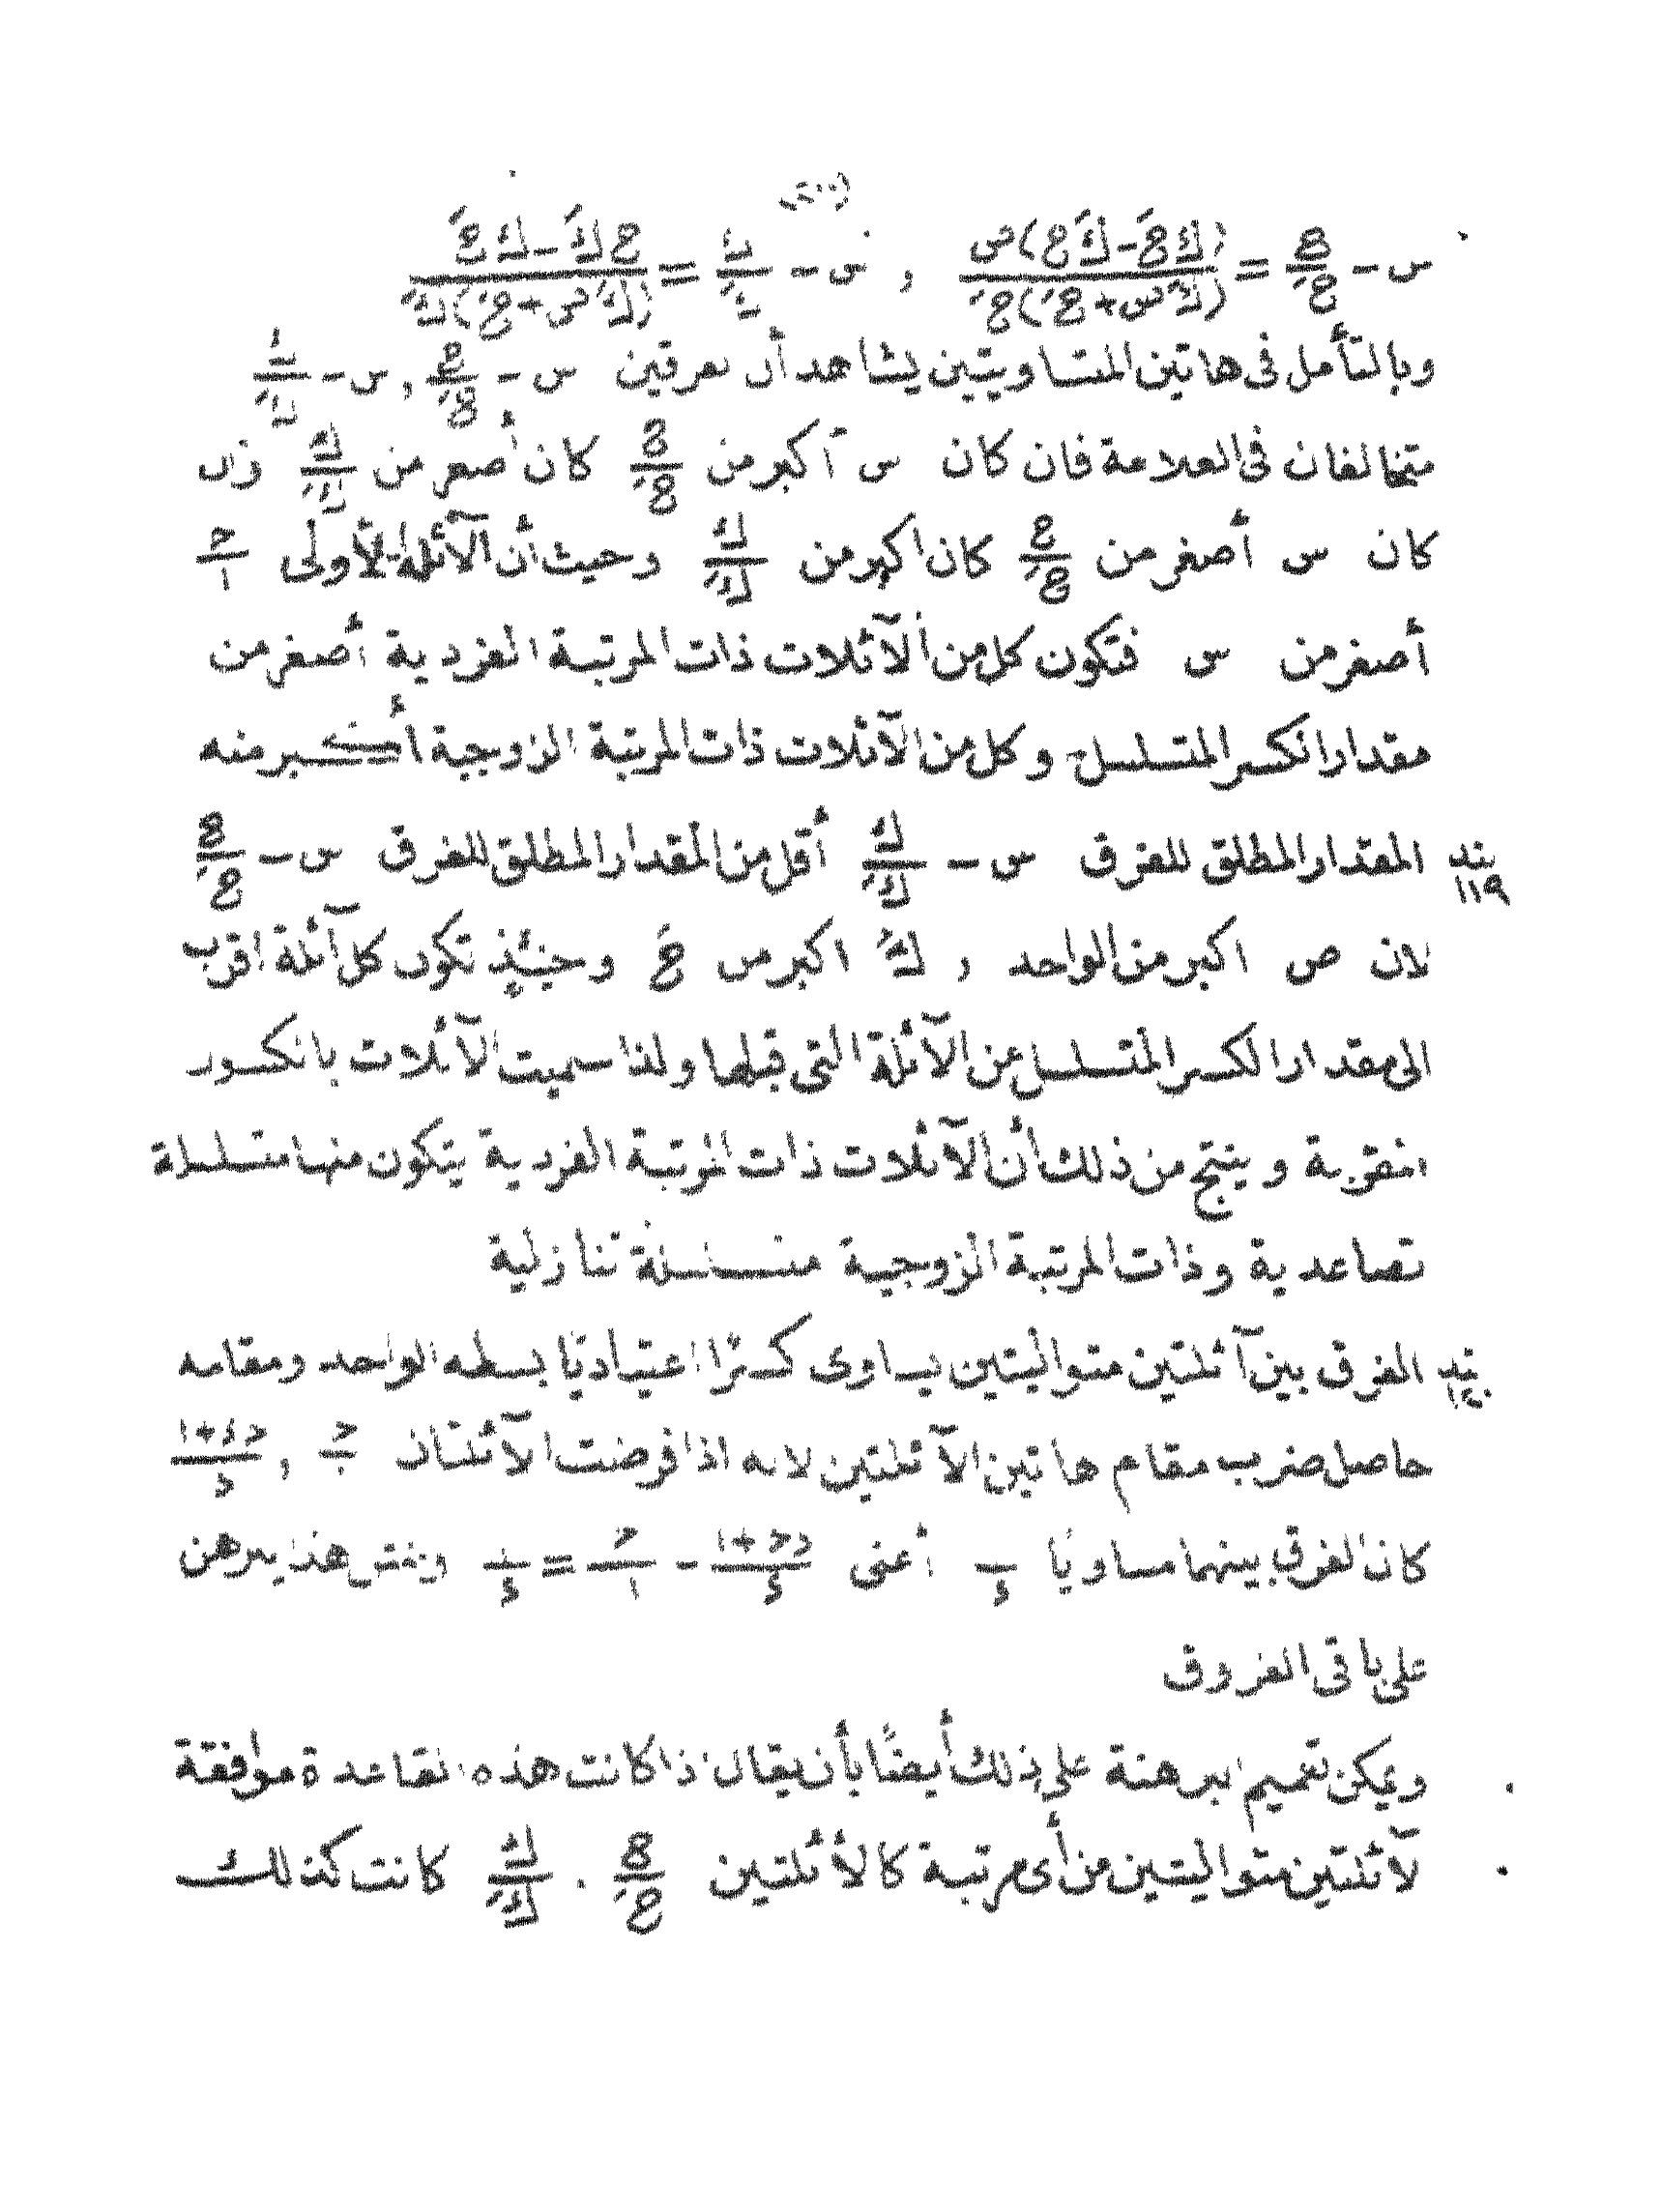 س - ع/عَ = (ك عَ - كَ ع) ص / (كَ ص + عَ) عَ , س - ك/كَ = (ع كَ - ك عَ) / (كَ ص + عَ) كَ
وبالتأمل فى هاتين المتساويتين يشاهد أن الفرقين س - ع/عَ , س - ك/كَ
متخالفان فى العلامة فان كان س أكبر من ع/عَ كان أصغر من ك/كَ وان
كان س أصغر من ع/عَ كان اكبر من ك/كَ وحيث أن الآئلة الأولى ح/١
أصغر من س فتكون كل من الآئلات ذات المرتبة الفردية أصغر من
مقدار الكسر المتسلسل وكل من الآئلات ذات المرتبة الزوجية أكبر منه
بند ١١٩ المقدار المطلق للفرق س - ك/كَ أقل من المقدار المطلق للفرق س - ع/عَ
لان ص اكبر من الواحد , كَ اكبر من عَ وحينئذ تكون كل آئلة اقرب
الى مقدار الكسر المتسلسل عن الآئلة التى قبلها ولذا سميت الآئلات بالكسور
المتقربة وينتج من ذلك أن الآئلات ذات المرتبة الفردية يتكون منها متسلسلة
تصاعدية وذات المرتبة الزوجية متسلسلة تنازلية
بند ١٢٠ الفرق بين آئلتين متواليتين يساوى كسرًا اعتياديًا بسطه الواحد ومقامه
حاصل ضرب مقام هاتين الآئلتين لانه اذا فرضت الآئلتان ح/١ , ح٤+١/٤
كان الفرق بينهما مساويًا ١/٤ أعنى ح٤+١/٤ - ح/١ = ١/٤ وبمثل هذا يبرهن
على باقى الفروق
ويمكن تعميم البرهنة على ذلك أيضًا بأن يقال اذا كانت هذه القاعدة موافقة
لآئلتين متواليتين من أى مرتبة كالأئلتين ع/عَ . ك/كَ كانت كذلك